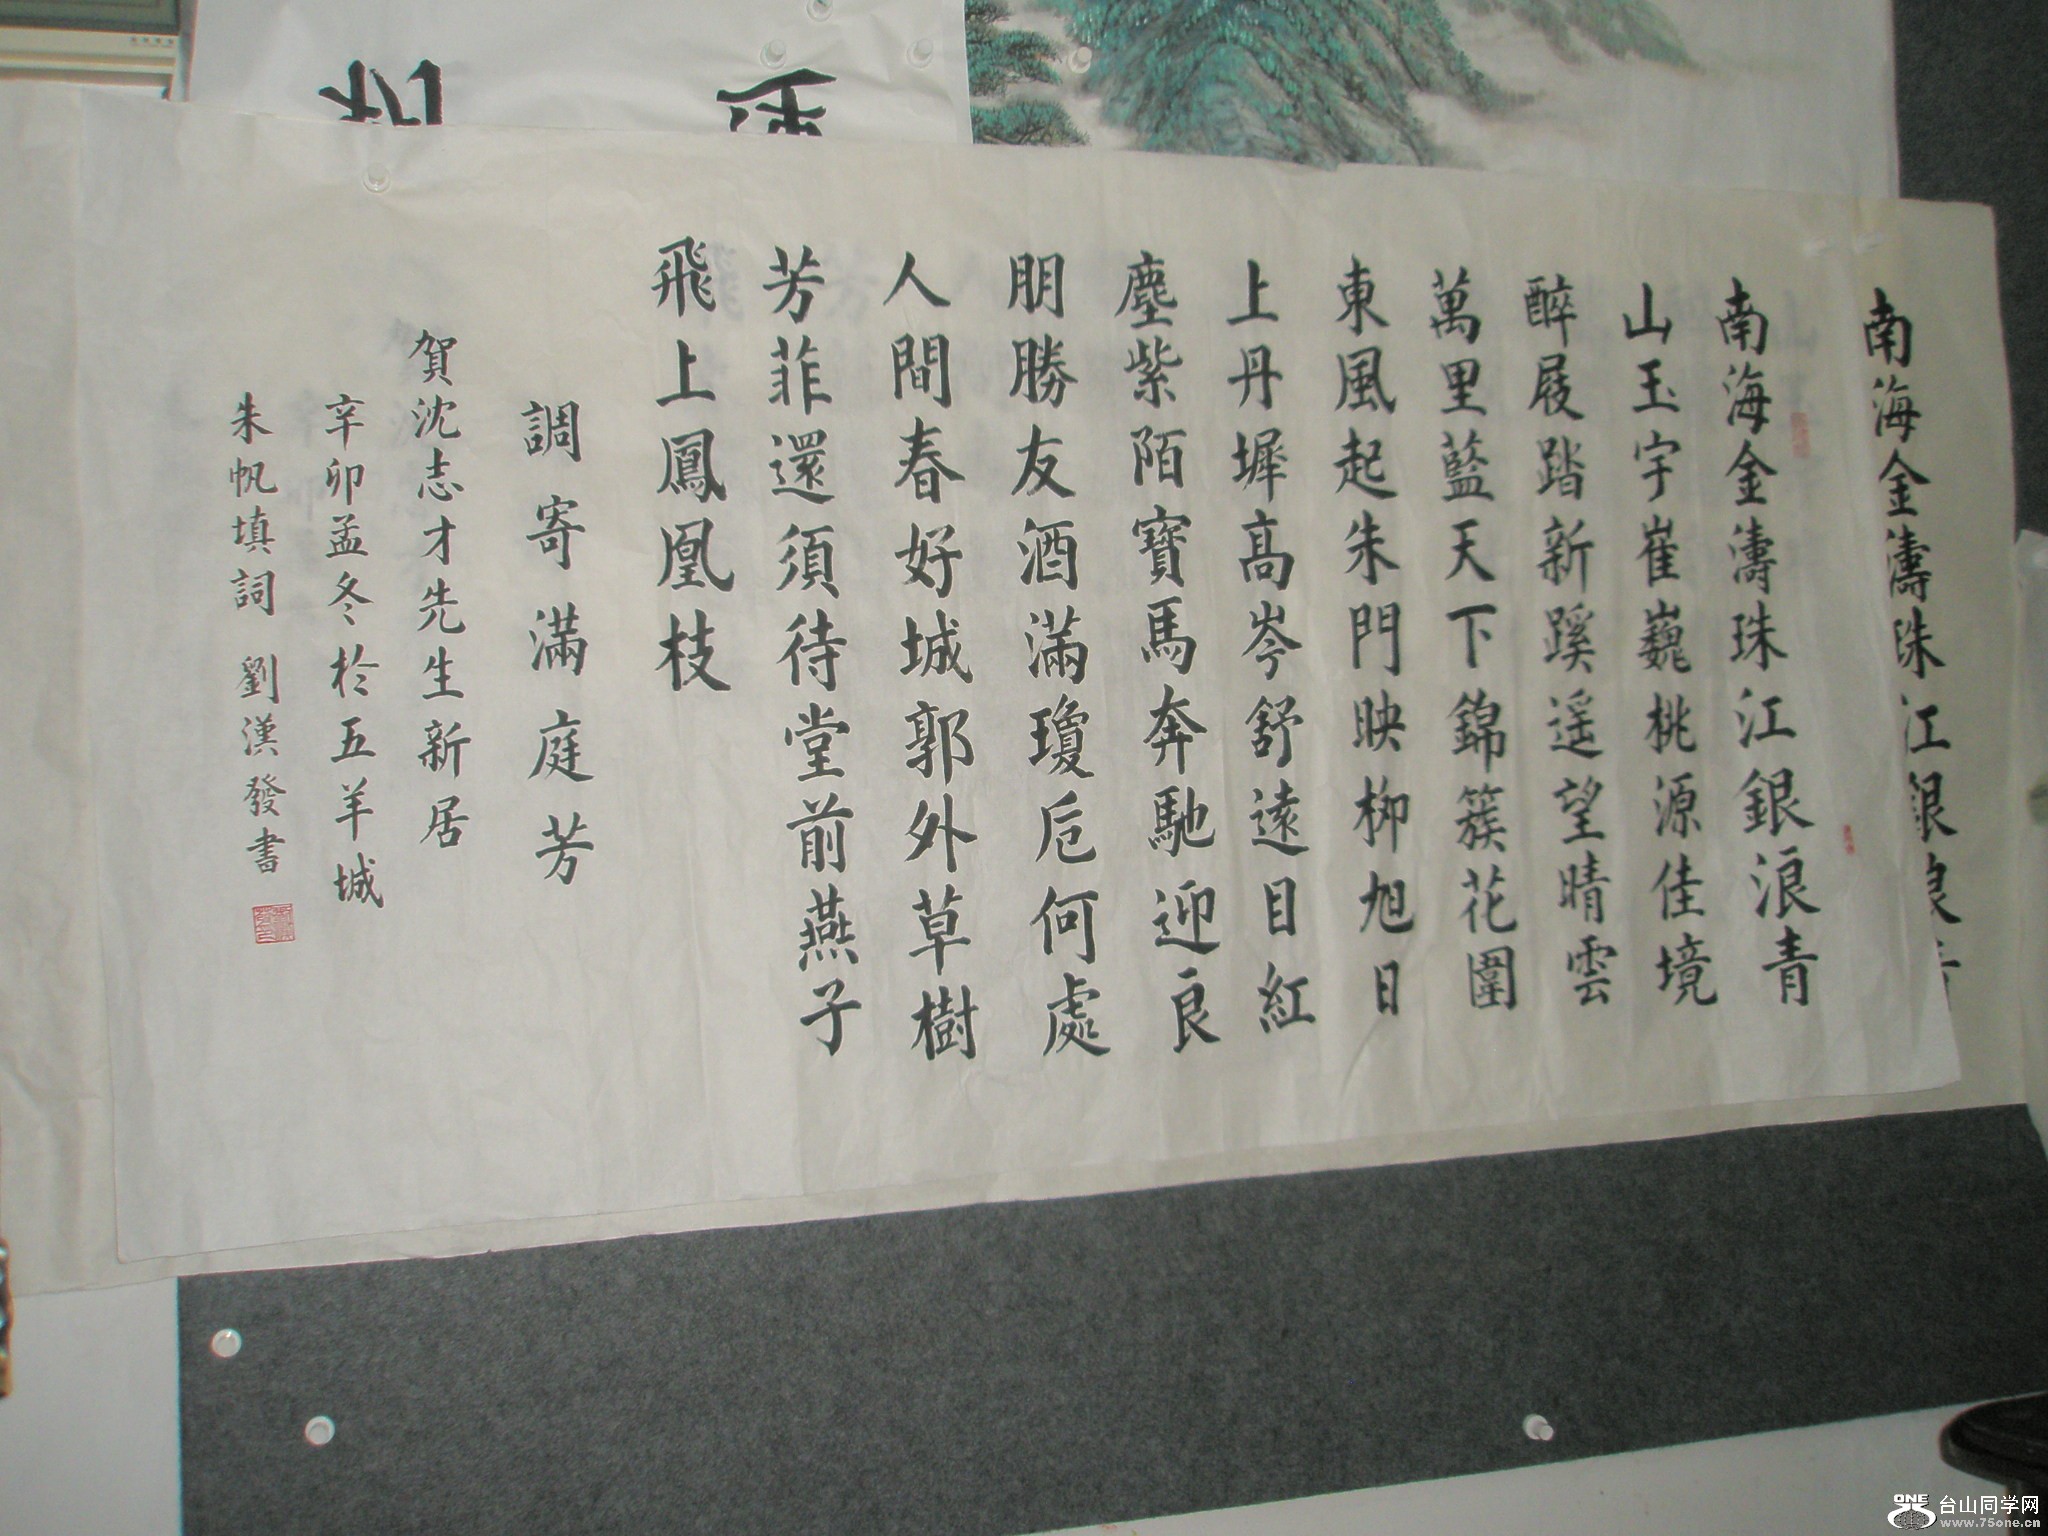 南海金濤珠江銀
南海金濤珠江銀浪青
山玉宇崔巍桃源佳境
醉屐踏新蹊遥望晴雲
萬里藍天下錦簇花圍
東風起朱門映柳旭日
上丹墀高岑舒遠目紅
塵紫陌寶馬奔馳迎良
朋勝友酒滿瓊卮何處
人間春好城郭外草樹
芳菲還須待堂前燕子
飛上鳳凰枝
調寄滿庭芳
賀沈志才先生新居
辛卯孟冬於五羊城
朱帆填詞 劉漢發書
ONE 台山同学网
www.75one.cn